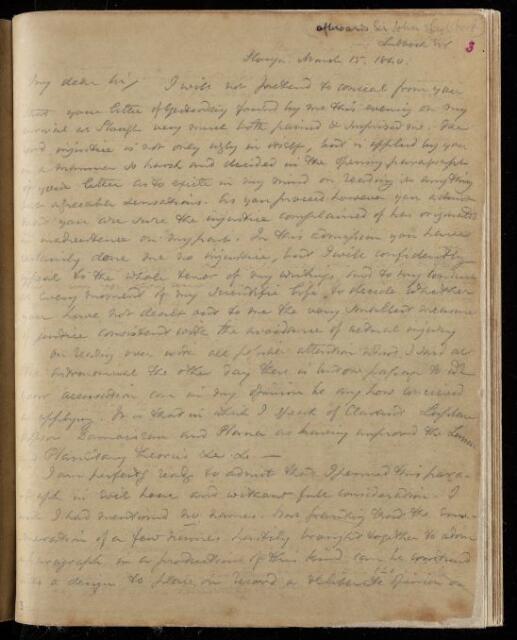 afterwards Sir John
Lubbock
3
Slough March 15. 1840.
My dear Sir/ I will not pretend to conceal from you
that your letter of yesterday found by me this evening on my
arrival at Slough very much both pained & surprised me. The
word injustice is not only ugly in itself, but is applied by you
in a manner so harsh and decided in the opening paragraph
of your letter as to excite in my mind on reading it anything
but agreeable sensations. As you proceed however you admit
that you are sure the injustice complained of has originated
in inadvertence on my part. In this admission you have
certainly done me no injustice, but I will confidently
appeal to the whole tenor of my writings, and to my conduct
at every moment of my scientific life, to decide whether
you have not dealt out to me the very smallest measure
of justice consistent with the avoidance of actual injury
On reading over with all possible attention what I said at
the Astronomical the other day there is but one passage to which
your accusation can in my opinion be any how conceived
as applying. It is that in which I speak of Clairaut Laplace
Damoiseau and Plana as having improved the Lunar
& Planetary theories &c &c —
I am perfectly ready to admit that I penned this para-
graph in evil hour and without full consideration. I
wish I had mentioned no names. But granting that the enu-
meration of a few names hastily brought together to adorn
a paragraph in a production of this kind can be construed
as a design to place on record a deliberate opinion on